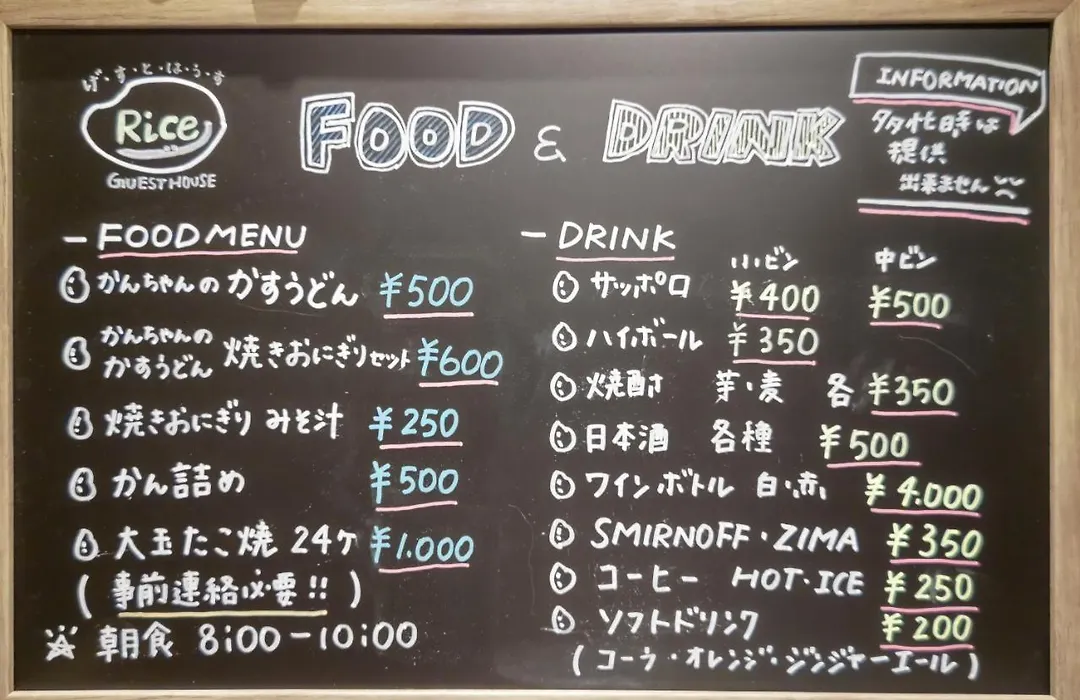 げ・す・と・は・う・す
Rice
GUESTHOUSE
FOOD & DRINK
INFORMATION
多忙時は
提供
出来ません
- FOOD MENU
かんちゃんの かすうどん ¥500
かんちゃんの
かすうどん 焼きおにぎりセット ¥600
焼きおにぎり みそ汁 ¥250
かん詰め ¥500
大玉たこ焼 24ケ ¥1.000
( 事前連絡必要!! )
☆ 朝食 8:00-10:00
- DRINK
小ビン 中ビン
サッポロ ¥400 ¥500
ハイボール ¥350
焼酎 芋・麦 各 ¥350
日本酒 各種 ¥500
ワインボトル 白・赤 ¥4.000
SMIRNOFF・ZIMA ¥350
コーヒー HOT・ICE ¥250
ソフトドリンク ¥200
(コーラ・オレンジ・ジンジャーエール)